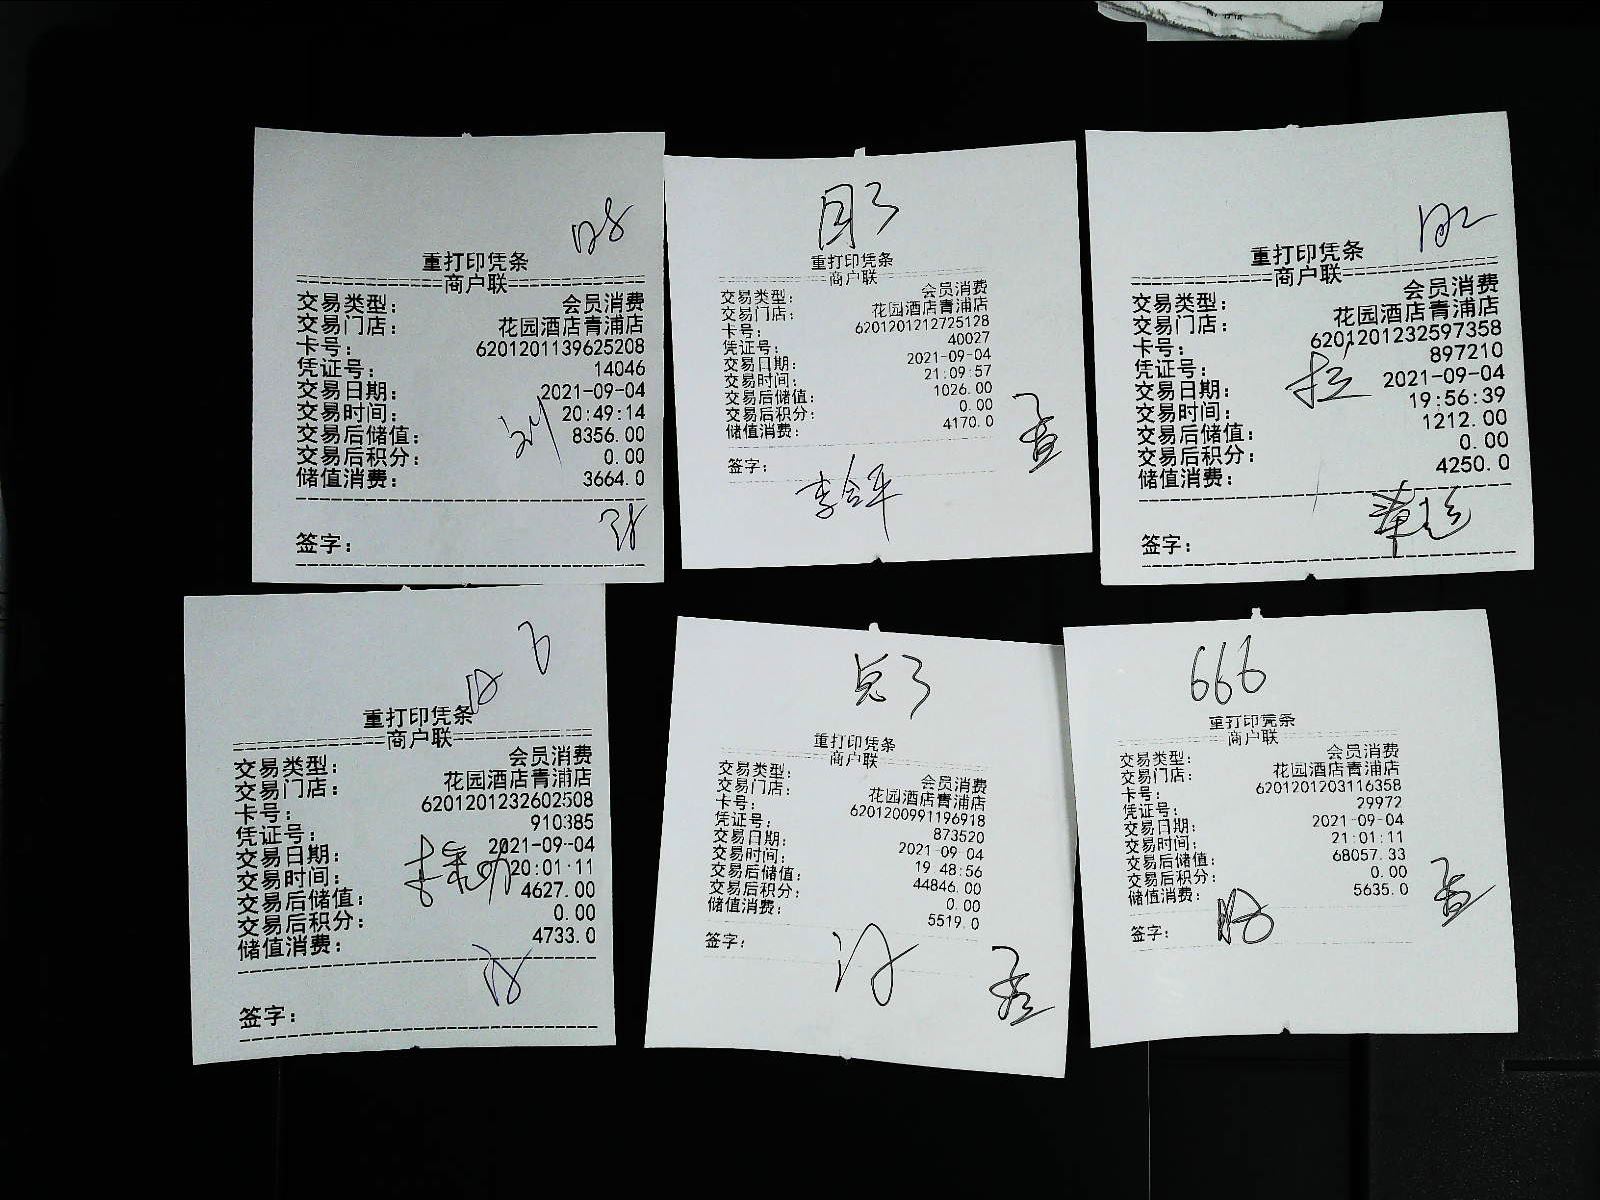 重打印凭条
商户联
交易类型： 会员消费
交易门店： 花园酒店青浦店
卡号： 6201201139625208
凭证号： 14046
交易日期： 2021-09-04
交易时间： 20:49:14
交易后储值： 8356.00
交易后积分： 0.00
储值消费： 3664.0
签字：
重打印凭条
商户联
交易类型： 会员消费
交易门店： 花园酒店青浦店
卡号： 6201201212725128
凭证号： 40027
交易日期： 2021-09-04
交易时间： 21:09:57
交易后储值： 1026.00
交易后积分： 0.00
储值消费： 4170.0
签字：
李合平
重打印凭条
商户联
交易类型： 会员消费
交易门店： 花园酒店青浦店
卡号： 6201201232597358
凭证号： 897210
交易日期： 2021-09-04
交易时间： 19:56:39
交易后储值： 1212.00
交易后积分： 0.00
储值消费： 4250.0
签字：
重打印凭条
商户联
交易类型： 会员消费
交易门店： 花园酒店青浦店
卡号： 6201201232602508
凭证号： 910385
交易日期： 2021-09-04
交易时间： 20:01:11
交易后储值： 4627.00
交易后积分： 0.00
储值消费： 4733.0
签字：
重打印凭条
商户联
交易类型： 会员消费
交易门店： 花园酒店青浦店
卡号： 6201200991196918
凭证号： 873520
交易日期： 2021-09-04
交易时间： 19:48:56
交易后储值： 44846.00
交易后积分： 0.00
储值消费： 5519.0
签字：
666
重打印凭条
商户联
交易类型： 会员消费
交易门店： 花园酒店青浦店
卡号： 6201201203116358
凭证号： 29972
交易日期： 2021-09-04
交易时间： 21:01:11
交易后储值： 68057.33
交易后积分： 0.00
储值消费： 5635.0
签字：